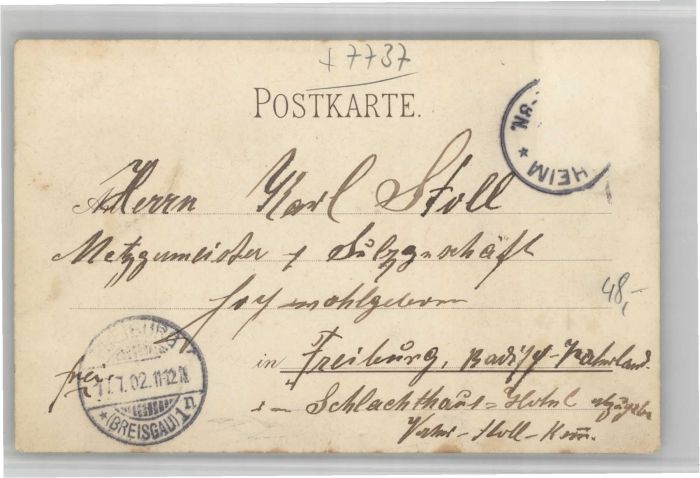 + 7737
POSTKARTE.
HEIM * 3N.
Herrn Karl Stoll
Metzgermeister + Sulzgeschäft
wohlgeboren
48,-
in Freiburg, Badisch-
frei
7.02.11-12 N
* (BREISGAU) 1 n
Schlachthaus-Hotel
Stoll